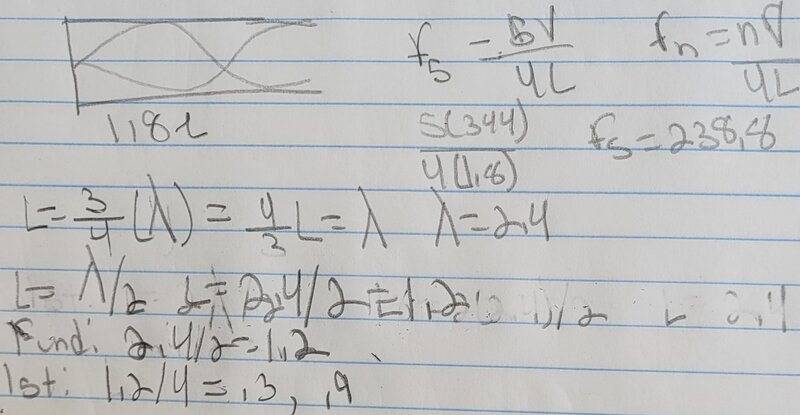 f₅ = 5V/4L fₙ = nV/4L
1,8L
5(344)/4(1,8) f₅ = 238,8
L = 3/4 (λ) = 4/3 L = λ λ = 2,4
L = λ/2 2,4/2 = 1,2
Fund: 2,4/2 = 1,2
1st: 1,2/4 = ,3, ,9